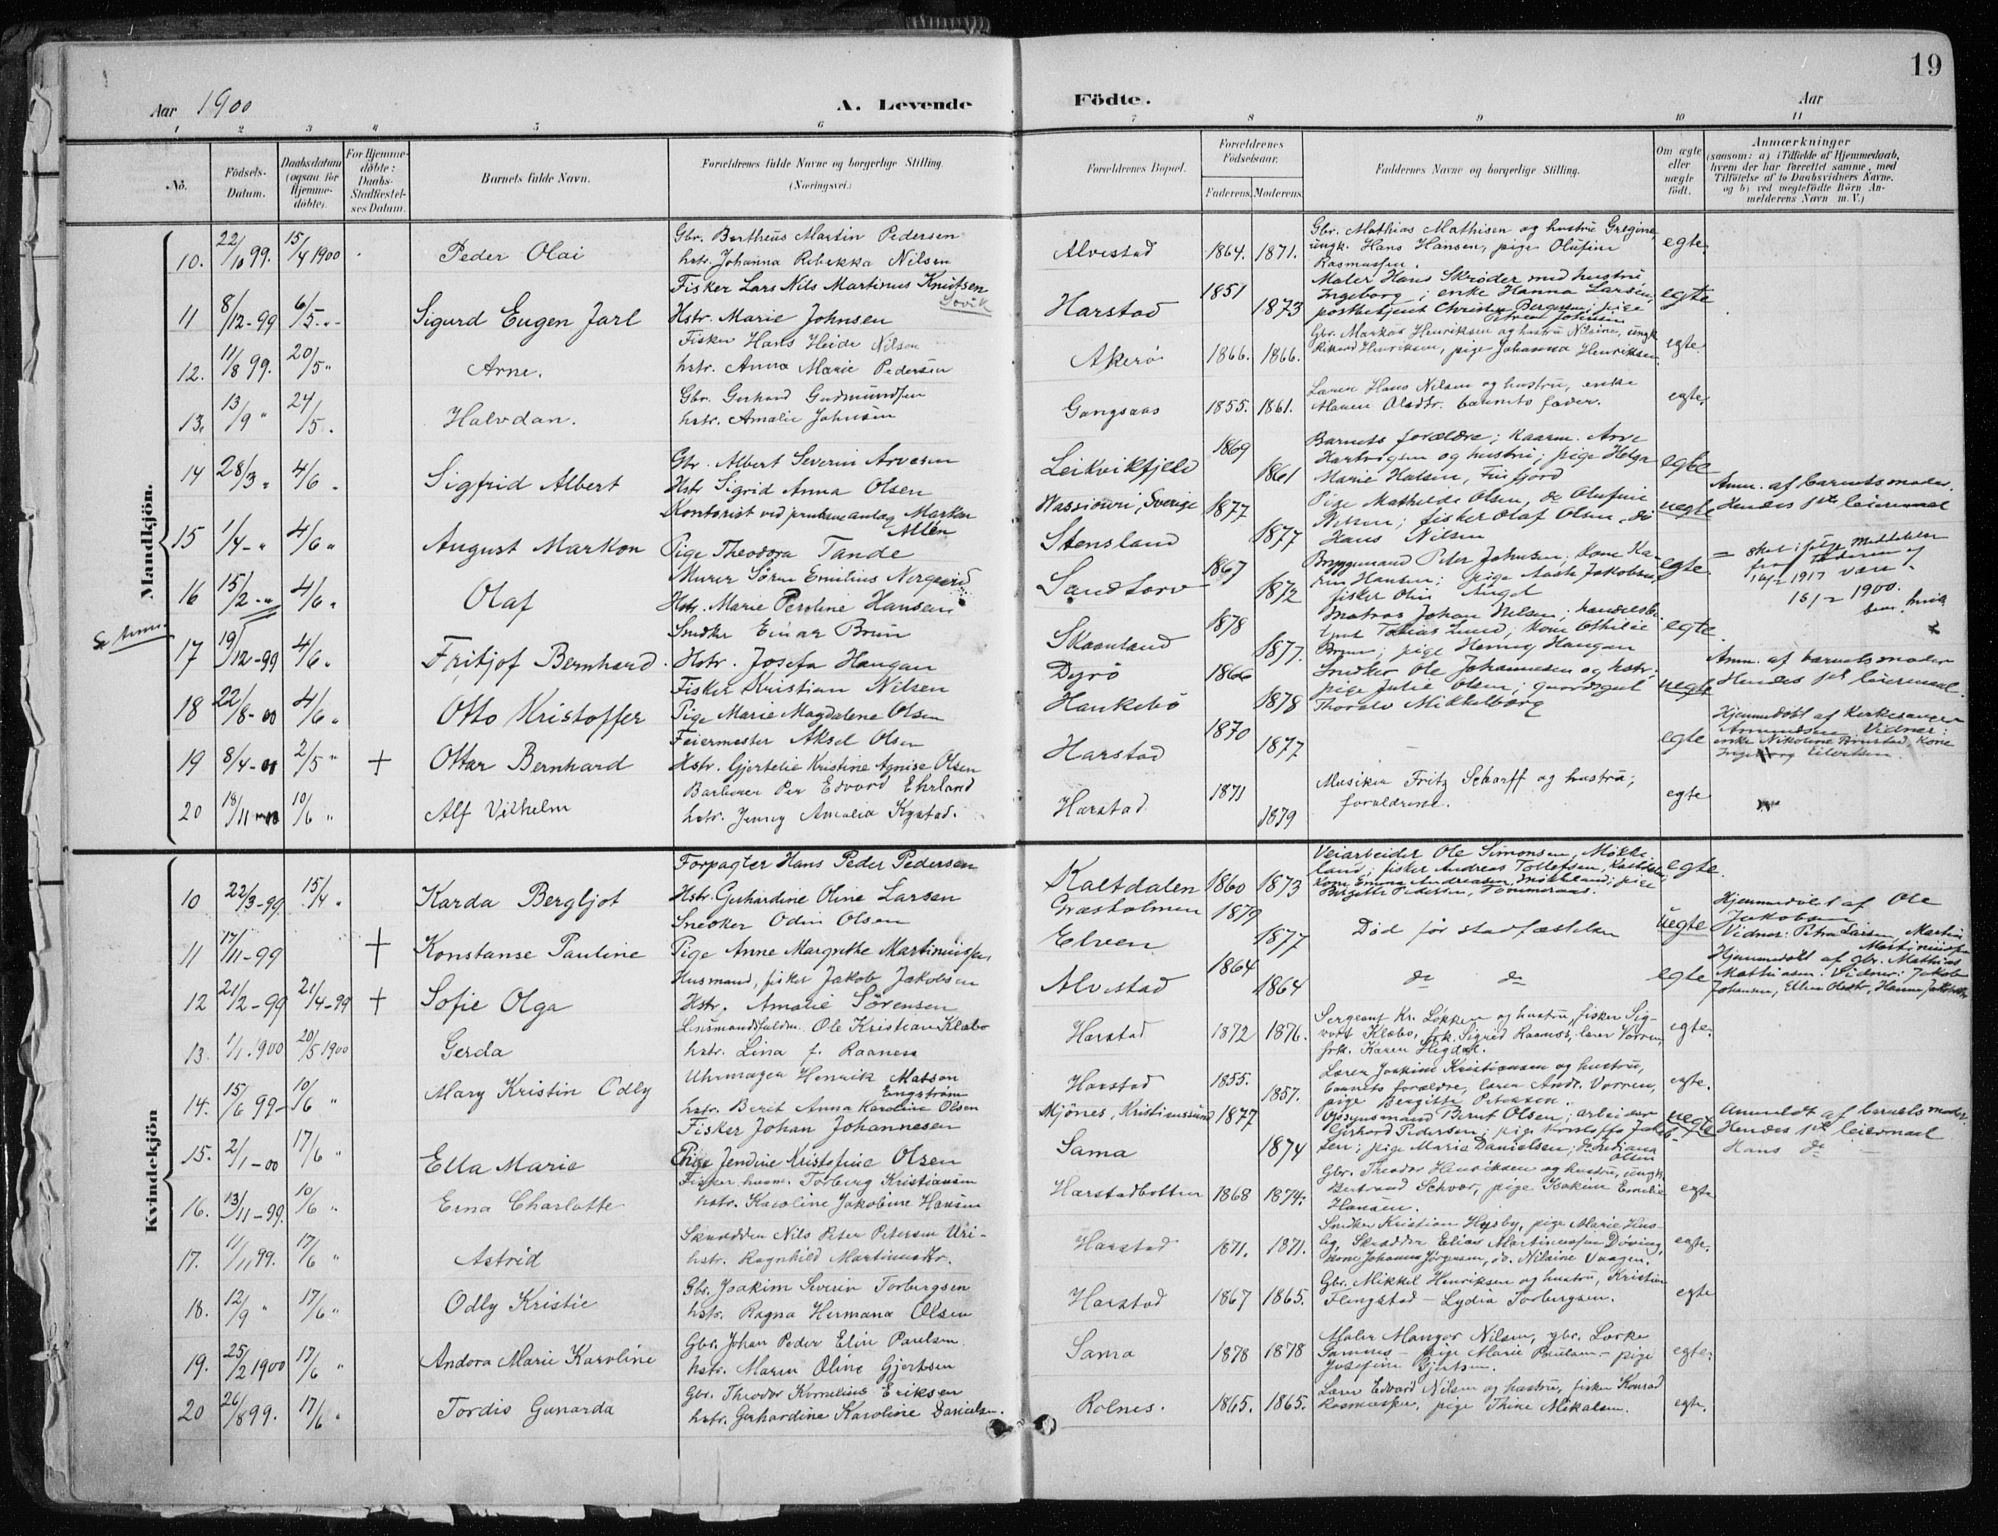 19
Aar 1900
A. Levende
Födte.
Aar
1 2 3 4 5 6 7 8 9 10 11
No.
Födsels-Datum.
Daabsdatum (ogsaa for Hjemme-döbte).
For Hjemme-döbte: Daabs-Stadfæstel-ses Datum.
Barnets fulde Navn.
Forældrenes fulde Navne og borgerlige Stilling. (Næringsvei.)
Forældrenes Bopæl.
Forældrenes Födselsaar.
Faderens. Moderens.
Faddernes Navne og borgerlige Stilling.
Om ægte eller uægte födt.
Anmærkninger
(saasom: a) i Tilfælde af Hjemmedaab, hvem der har forrettet samme, med Tilföielse af to Daabsvidners Navne, og b) ved uægtefödte Börn An-melderens Navn m. V.)
Mandkjön.
10. 22/10 99. 15/4 1900 Peder Olai
Gbr. Bertheus Martin Pedersen
hstr. Johanna Rebekka Nilsen
Alvestad 1864. 1871.
Gbr. Mathias Mathisen og hustru Gregine
ungk. Hans Hansen, pige Olufine
Rasmussen.
egte.
11 8/12-99 6/5 Sigurd Eugen Jarl
Fisker Lars Nils Martinus Knutsen
Hstr. Marie Johnsen
Harstad 1851 1873
Maler Hans Skrøder med hustru
Ingeborg; enke Hanna Larsen,
egte
12. 11/8 99. 20/5 Arne.
Fisker Hans Heide Nilsen
hstr. Anna Marie Pedersen
Akerö 1866. 1866.
Gbr. Markus Henriksen og hustru Nilsine, ungk.
Rikard Henriksen, pige Johanna Henriksen
egte.
13. 13/9 " 24/5. Halvdan.
Gbr. Gerhard Gudmundsen
hstr. Amalie Johnsen
Gangsaas 1855. 1861.
Lærer Hans Nilsen og hustru, enke
Maren Olsdtr. barnets fader.
egte.
14 28/3 " 4/6 Sigfrid Albert
Gbr. Albert Severin Arvesen
Hstr Sigrid Anna Olsen
Leikvikfjeld 1869 1861
Barnets forældre; Kaarm. Arve
Hartvigsen og hustru; pige Helga
Marie Halsen, Finfjord
egte
15 1/4 - " 4/6 " August Markon
Pige Theodora Tande
Stensland 1877 1877
Pige Mathilde Olsen, do Olufine
Nilsen; fisker Olaf Olsen, do
Hans Nilsen
uegte
Anm. af barnets moder.
Hendes 1ste leiermaal
16 15/2 - " 4/6 " Olaf
Murer Sören Emilius Nergaard
Hstr. Marie Peroline Hansen
Sandtorv 1867 1872
Bryggemand Peter Johnsen, Kone Ka-
rin Hansen; pige Aasta Jakobsen,
fisker Olin Angel
egte
skal ifølge meddelelse
fra faderen af
16/2 1917 være
15/2 1900.
17 19/12-99 4/6 Fritjof Bernhard.
Snedker Einar Brun
Hstr. Josefa Haugan
Skaanland 1878 1877.
Matros Johan Nilsen; handelsbe-
tjent Tobias Lund, kone Othilie
Brun; pige Henny Haugan
egte
18 22/8-00 4/6 Otto Kristoffer
Fisker Kristian Nilsen
Pige Marie Magdalene Olsen
Dyrö 1866
Haukebö 1878
Snedker Ole Johannesen og hstr;
pige Julie Olsen; gaardsgut
Thoralv Mikkelborg
uegte
Anm. af barnets moder
Hendes 1ste leiermaal.
19 8/4-00 2/5 " + Ottar Bernhard
Feiermester Aksel Olsen
Hstr. Gjertelie Kristine Agnise Olsen
Harstad 1870 1877
egte
Hjemmedøbt af Kirkesanger
20 18/11 10/6 " Alf Vilhelm
Barberer Per Edvard Ehrland
hstr. Jenny Amalia Kystad.
Harstad 1871 1879
Musiker Fritz Scharff og hustru;
forældrene.
egte
Kvindekjön
10 22/3-99 15/4 " Karda Bergljot
Forpagter Hans Peder Pedersen
Hstr. Gerhardine Oline Larsen
Kaltdalen 1860 1873
Veiarbeider Ole Simonsen, Møkke-
land; fisker Andreas Tollefsen,
Kone Emma Andreasen, Møkland; pige
Birgitte Pedersen, Tömmeraas.
egte
11 17/11-99 + Konstanse Pauline
Snedker Odin Olsen
Pige Anne Margrethe Martinussen
Græsholmen 1879
Elven 1877
Død før stadfæstelsen
uegte
Hjemmedöbt af Ole
Jakobsen
Vidner: Petra Larsen, Martin
Martinussen
12 21/2-99 21/4-99 + Sofie Olga
Husmand, fisker Jakob Jakobsen
Hstr. Amalie Sörensen
Alvestad 1864 1864
do do
egte
Hjemmedöbt af gbr. Mathias
Mathiasen. Vidner: Jakob
Johansen, Ellen Olsdtr,
13. 1/1 1900 20/5 1900 Gerda
Lensmandsfuldm. Ole Kristian Klæbo
hstr. Lina f. Raanes
Harstad 1872 1876.
Sergeant Kr. Løkken og hustru, fisker Sig-
vart Klæbo, frk. Sigrid Raanes, lærer Vorren,
frk. Karen Høgdal.
egte.
14. 15/6 99- 10/6 " Mary Kristin Odly
Uhrmager Henrik Matson
Engström
hstr. Berit Anna Karoline Olsen
Harstad 1855. 1857.
Lærer Joakim Kristiansen og hustru,
barnets forældre, lærer Andr. Vorren,
pige Bergitte Petersen.
egte.
15. 2/1-00 17/6 " Ella Marie
Fisker Johan Johannesen
Pige Jendine Kristofine Olsen
Mjönes, Kristianssund 1877
Sama 1874
Opsynsmand Bernt Olsen; arbeider
Gerhard Pedersen; pige Kristoffa Jakob-
sen; pige Marie Danielsen; do Indiana
Olsen
uegte
Anmeldt af barnets moder.
Hendes 1ste leiermaal
Hans do
16. 13/11-99. 10/6 " Erna Charlotte
Fisker, husm. Torberg Kristiansen
hstr. Karoline Jakobine Hansen
Harstadbotten 1868 1874.
Gbr. Theodor Henriksen og hustru, ungk.
Bertrand Schvær, pige Joakine Emelie
Hansen.
egte
17. 11/11 99. 17/6 " Astrid
Skrædder Nils Peter Petersen Uri-
hstr. Ragnhild Martinusdtr.
Harstad 1871. 1871.
Snedker Kristian Hysby, pige Marie Hus-
by, Skrædder Elias Martinussen Döving,
kone Johanna Jörgensen, do. Nilsine Vaagen.
egte.
18. 12/9 " 17/6 " Odly Kristie
Gbr. Joakim Severin Torbergsen
hstr. Ragna Hermana Olsen
Harstad 1867 1865.
Gbr. Mikkel Henriksen og hustru, Kristian
Flengstad - Lydia Torbergsen.
egte
19. 25/2 1900 17/6 " Andora Marie Karoline
Gbr. Johan Peder Elin Paulsen
hstr. Maren Oline Gjertsen
Sama 1878 1878
Maler Mangor Nilsen, gbr. Lorke
Samnes - pige Marie Paulsen - pige
Josefine Gjertsen.
egte.
20 26/8 99. 17/6 " Tordis Gunarda
Gbr. Theodor Kornelius Eriksen
hstr. Gerhardine Karoline Danielsen.
Rolnes. 1865. 1865.
Lærer Edvard Nilsen og hustru, fisker Konrad
Rasmussen, pige Thine Mikalsen.
egte.